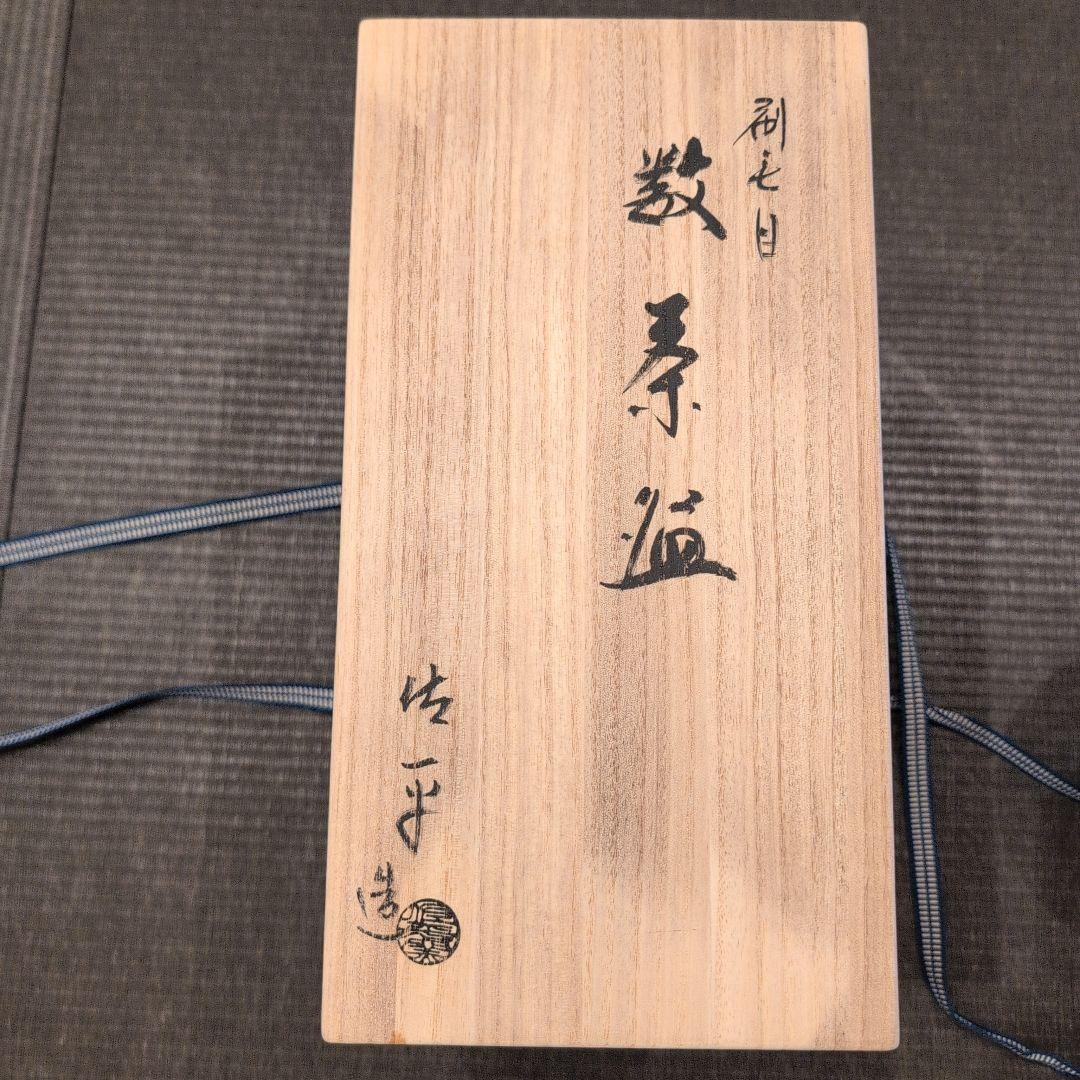 刷毛目
数茶碗
佐平造